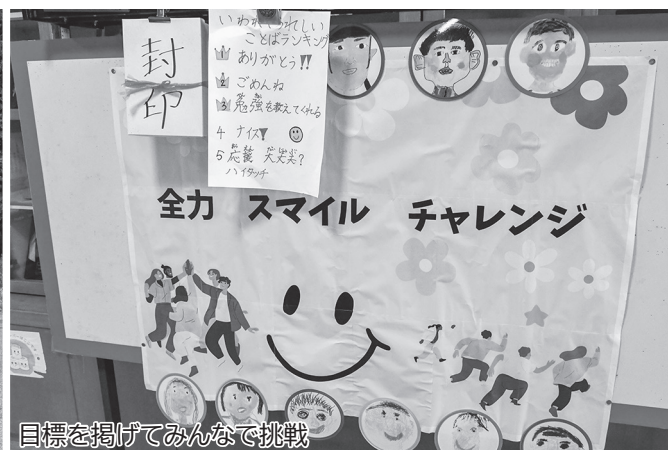 封
印
いわれてうれしい
ことばランキング
1 ありがとう!!
2 ごめんね
3 勉強を教えてくれる
4 ナイス
5 応援 大丈夫?
ハイタッチ
全力 スマイル チャレンジ
目標を掲げてみんなで挑戦